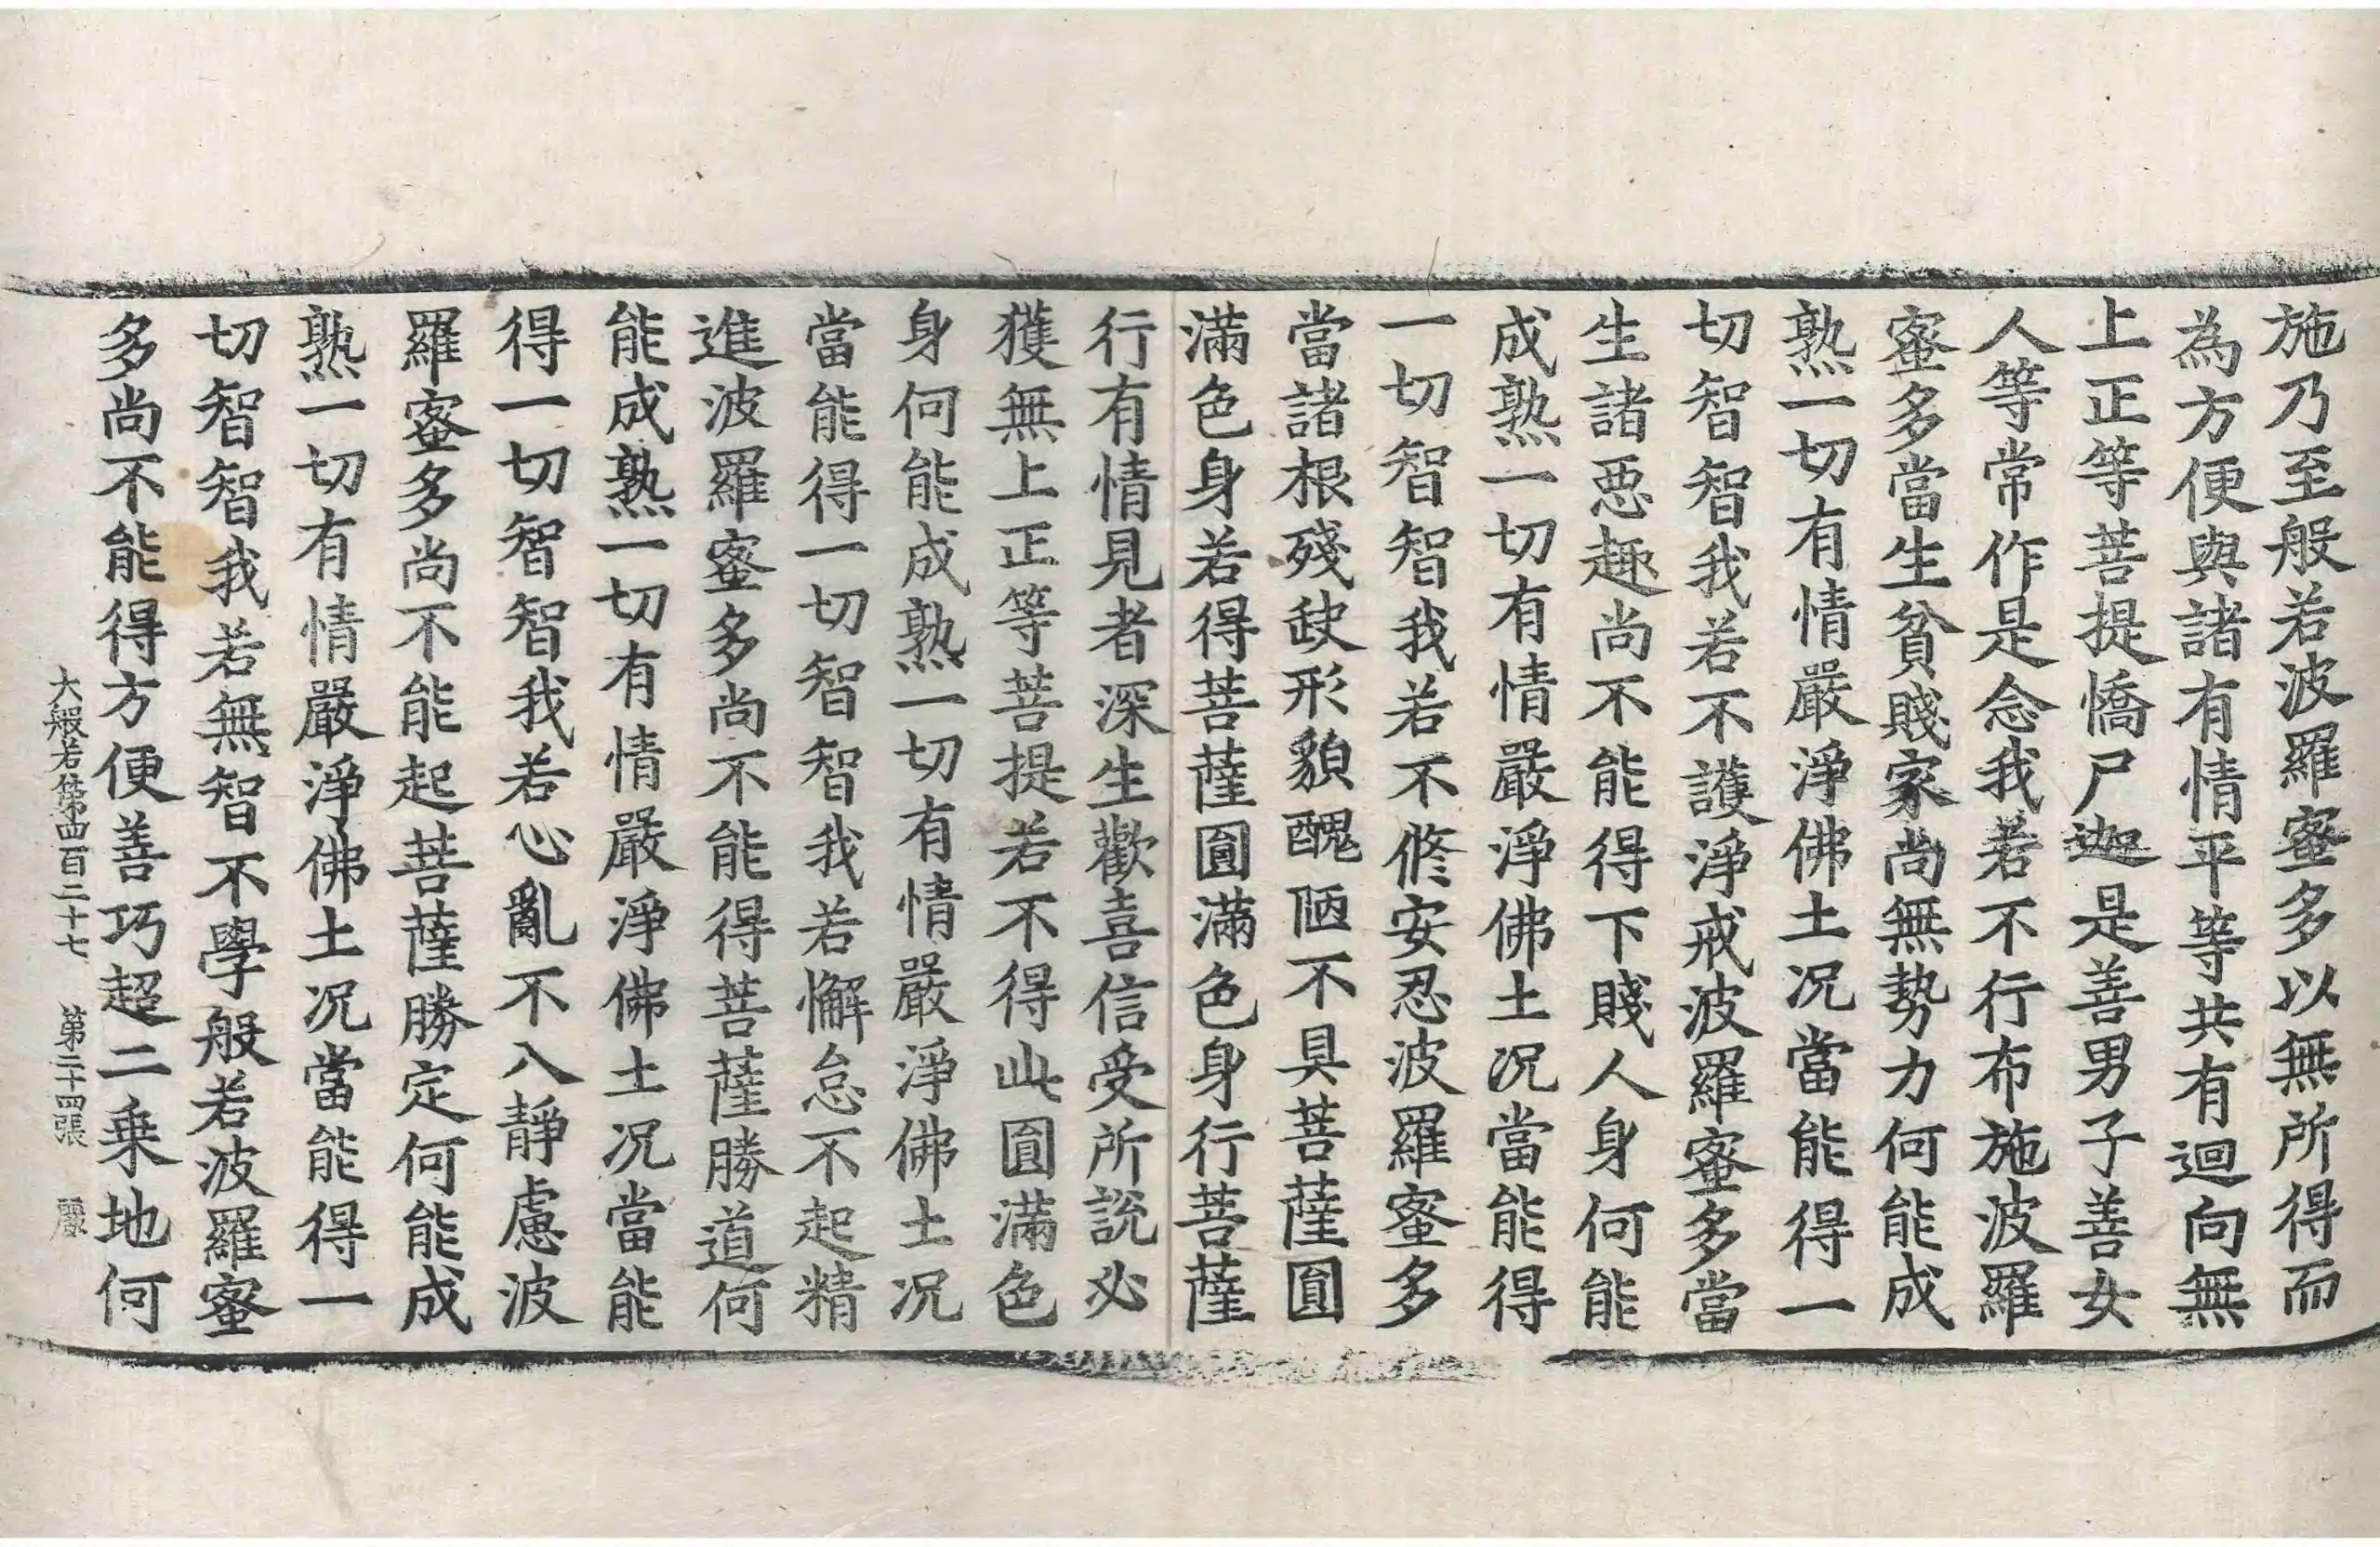 施乃至般若波羅蜜多以無所得而
為方便與諸有情平等共有迴向無
上正等菩提憍尸迦是善男子善女
人等常作是念我若不行布施波羅
蜜多當生貧賤家尚無勢力何能成
熟一切有情嚴淨佛土况當能得一
切智智我若不護淨戒波羅蜜多當
生諸惡趣尚不能得下賤人身何能
成熟一切有情嚴淨佛土况當能得
一切智智我若不修安忍波羅蜜多
當諸根殘缺形貌醜陋不具菩薩圓
滿色身若得菩薩圓滿色身行菩薩
行有情見者深生歡喜信受所說必
獲無上正等菩提若不得此圓滿色
身何能成熟一切有情嚴淨佛土况
當能得一切智智我若懈怠不起精
進波羅蜜多尚不能得菩薩勝道何
能成熟一切有情嚴淨佛土况當能
得一切智智我若心亂不入靜慮波
羅蜜多尚不能起菩薩勝定何能成
熟一切有情嚴淨佛土况當能得一
切智智我若無智不學般若波羅蜜
多尚不能得方便善巧超二乗地何
大般若第四百二十七 第二十四張 麗